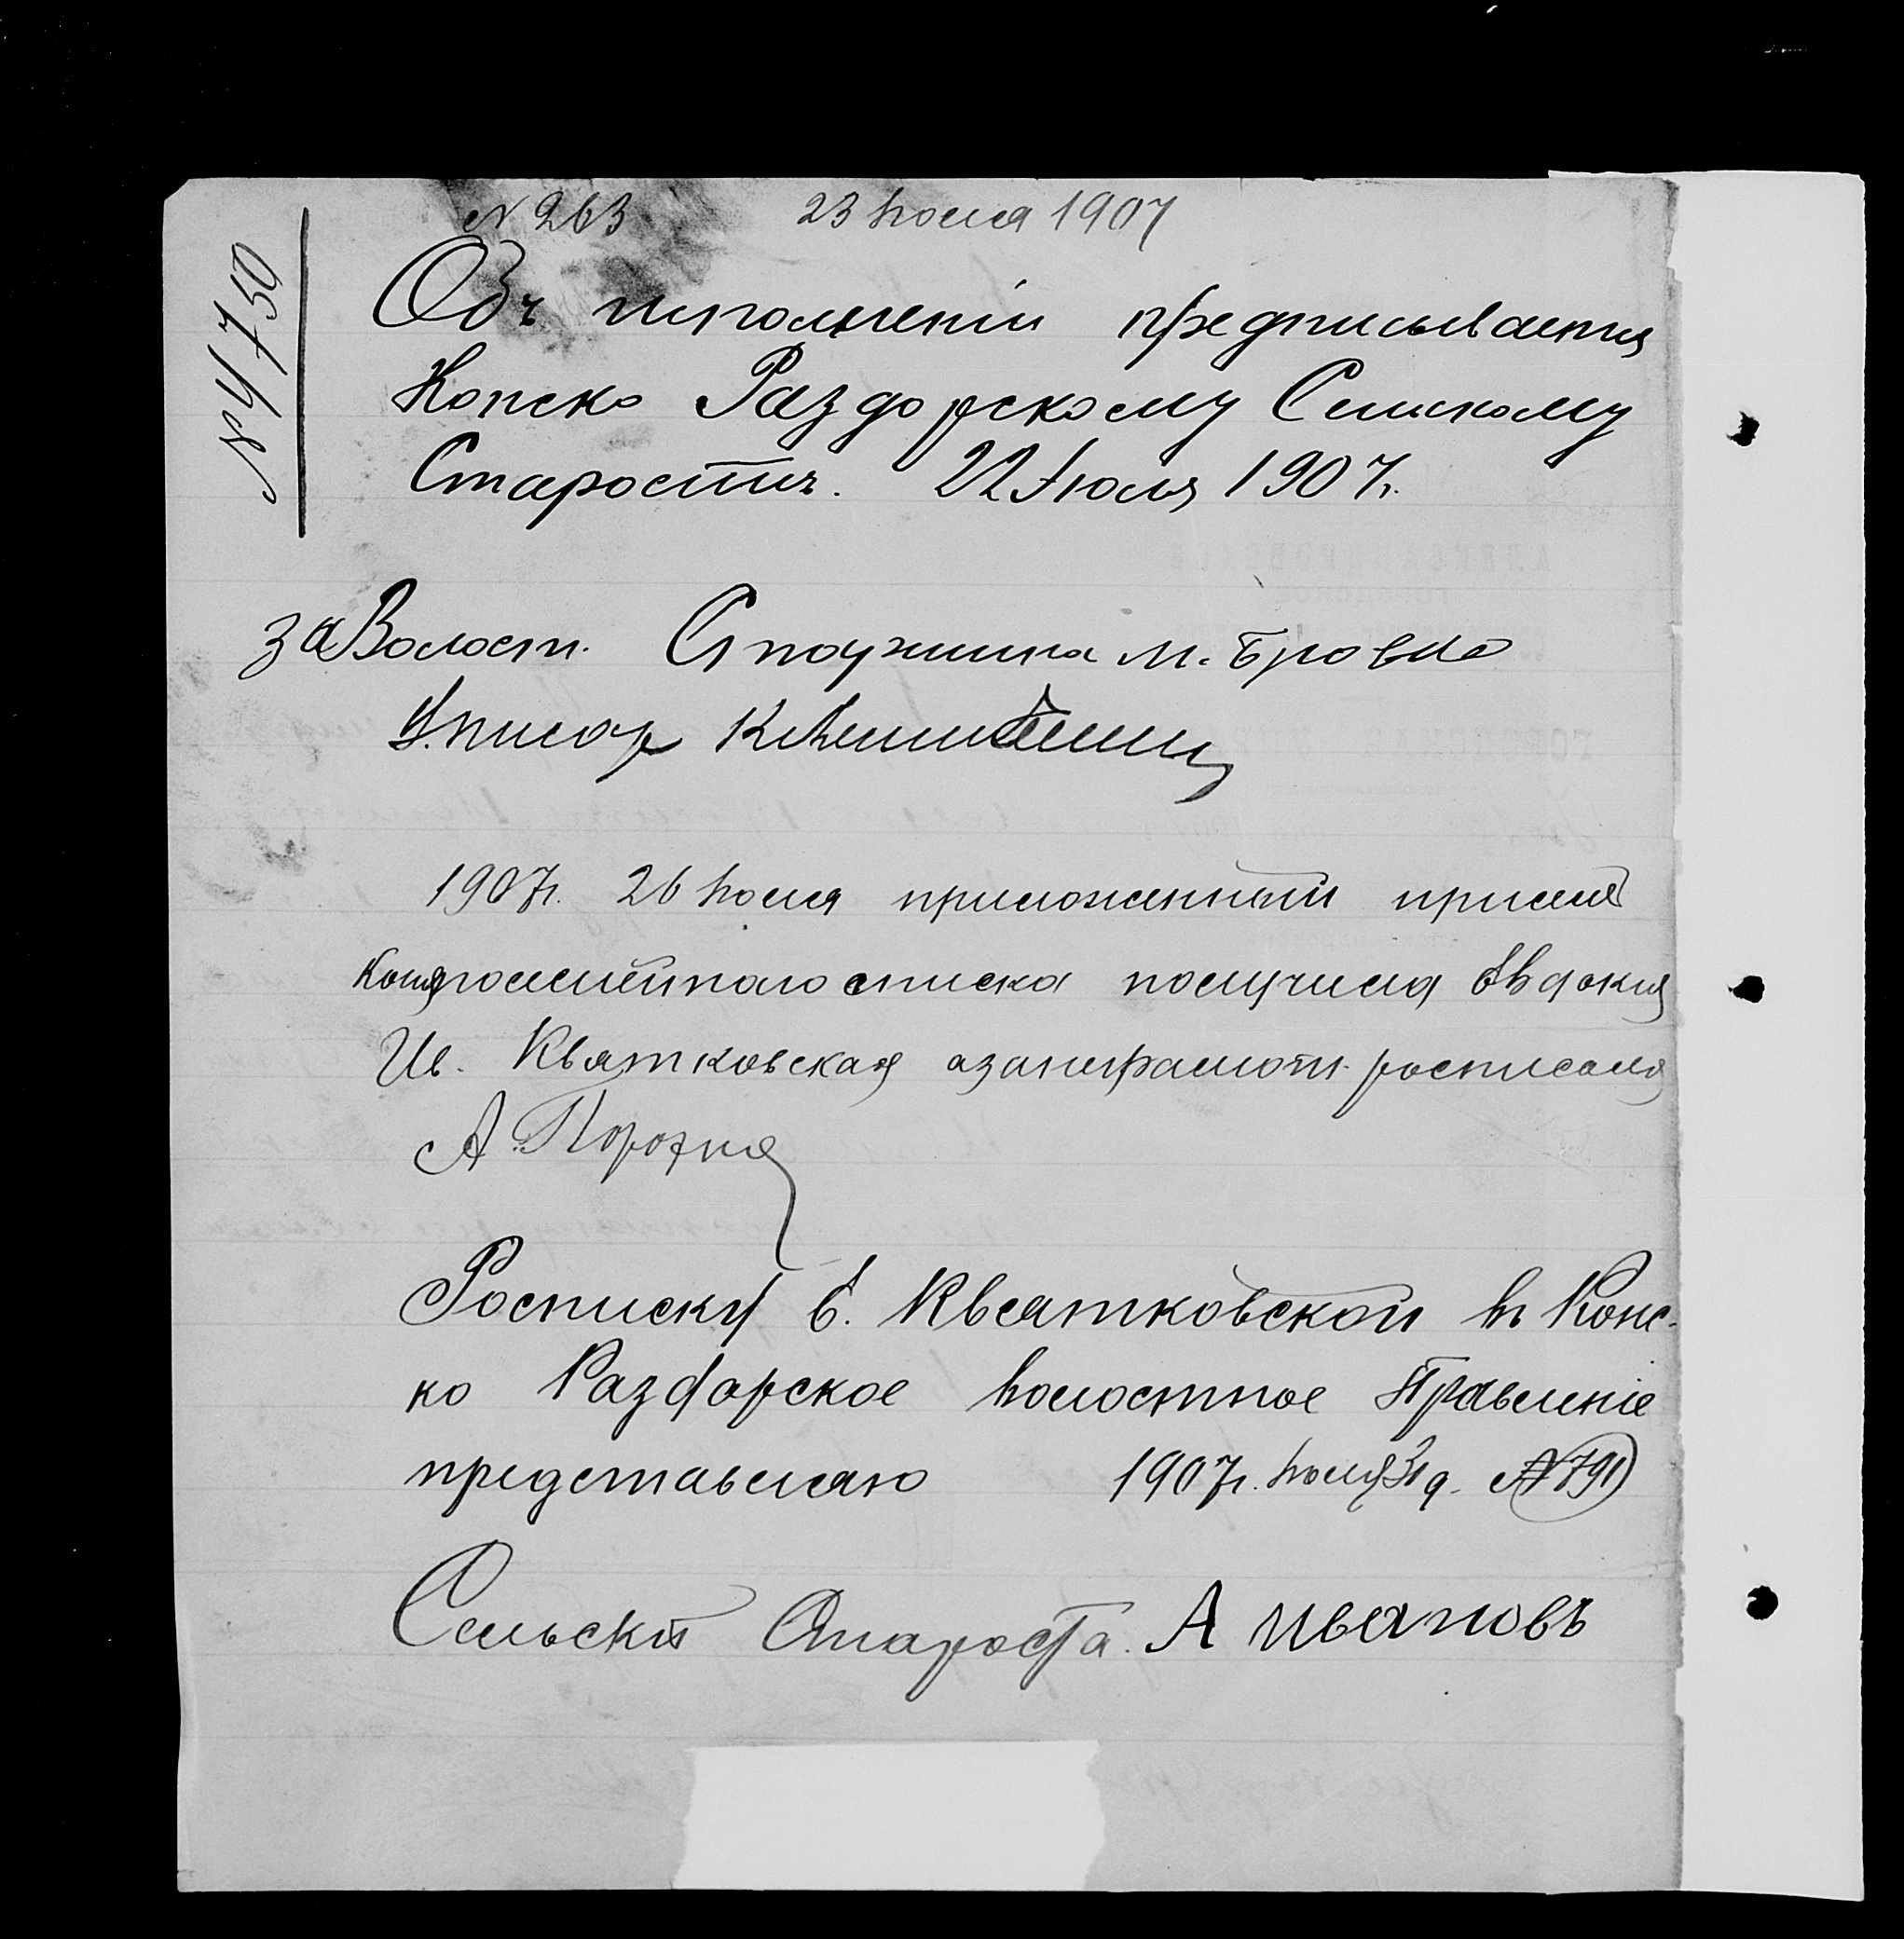 № 263 23 Іюля 1907
№ 4750
Объ исполненіи предписывается
Конско Раздорскому Сельскому
Старостѣ. 22 Іюля 1907 г.
за Волост. Старшина М. Бровко
У. писарь
1907 г. 26 Іюля приложенный
списка получила Евдокия
Ив. Квятковская а за неграмотн. росписался
А. Порохня
Росписку Е. Квятковской въ Конс-
ко Раздорское волостное Правленіе
представляю 1907 г. Іюля 31 д. № 791
Сельскій Староста А Ивановъ